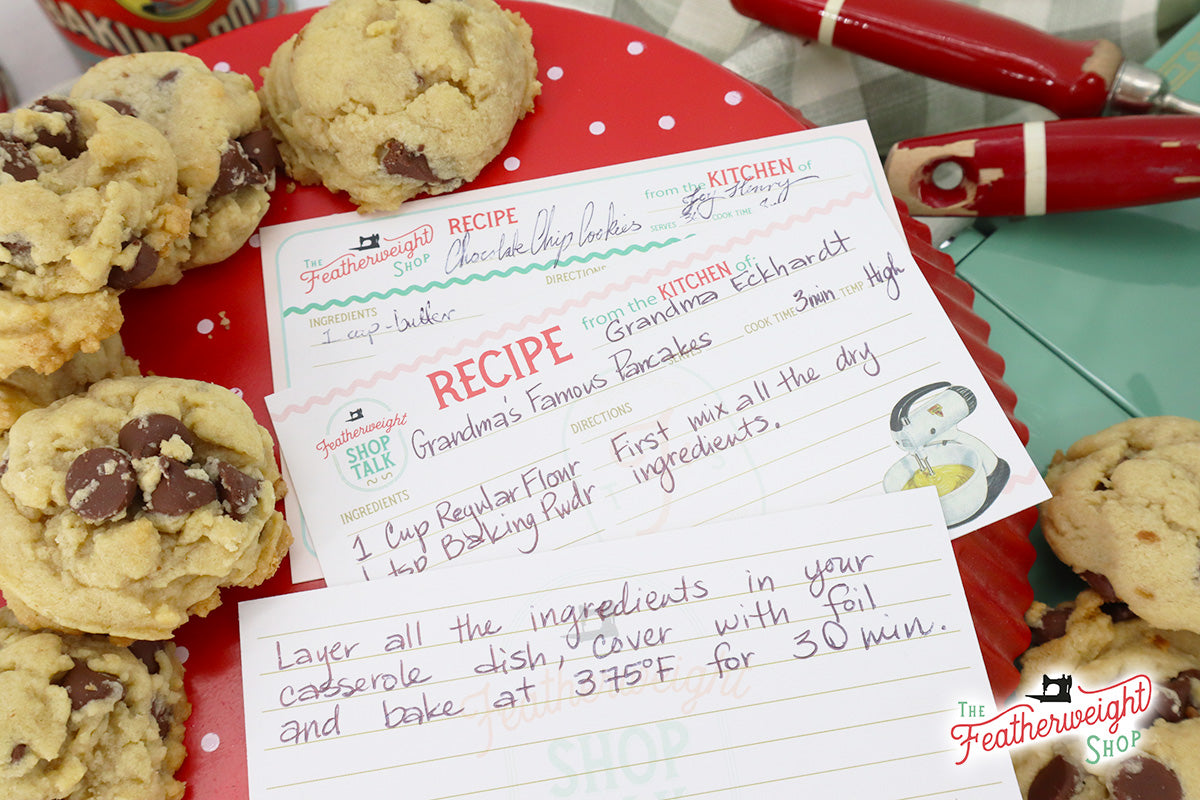 BAKING PO
THE
Featherweight
SHOP
RECIPE
from the KITCHEN of
Chocolate Chip Cookies
Henry
SERVES
COOK TIME
INGREDIENTS
DIRECTIONS
1 cup - butter
RECIPE
from the KITCHEN of:
Grandma Eckhardt
Grandma's Famous Pancakes
SERVES
COOK TIME 3min TEMP High
Featherweight
SHOP
TALK
INGREDIENTS
DIRECTIONS
1 Cup Regular Flour
1 tsp Baking Pwdr
First mix all the dry
ingredients.
Layer all the ingredients in your
casserole dish, cover with foil
and bake at 375°F for 30 min.
Featherweight
SHOP
TALK
THE
Featherweight
SHOP